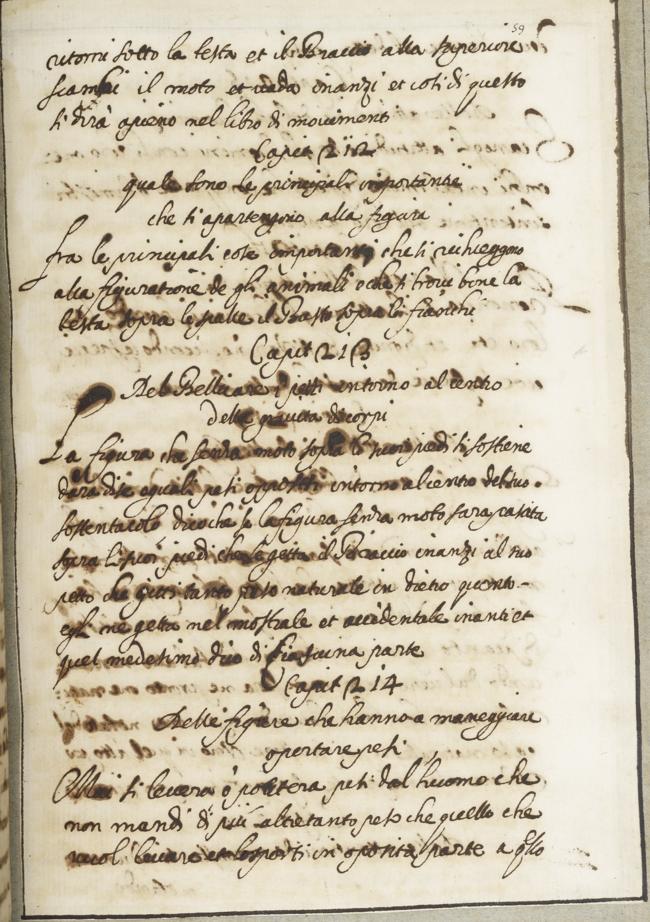 59
ritorni sotto la testa et il Braccio alla superiore
scambi il moto et vada inanzi et cosi di questo
si dirà apieno nel libro di movimenti
Capit 212
quale sono le principali importantie
che si apartengono alla figura
fra le principali cose importanti che si richieggono
alla figuratione de gli animali è che si trovi bene la
testa sopra le spalle il Busto sopra li fianchi
Capit 213
Del Bellicare i pesi intorno al centro
della gravita di corpi
La figura che senza moto sopra li suoi piedi si sostiene
dara di se eguali pesi oppositi intorno al centro del suo
sostentacolo dico che se la figura senza moto sara posata
sopra li suoi piedi che se getta il Braccio inanzi al suo
petto che getti tanto peso naturale in dietro quanto
egli ne getta nel mostrale et accidentale inanti et
quel medesimo dico di ciascuna parte
Capit 214
Delle figure che hanno a maneggiare
o portare pesi
Mai si levera o portera pesi dal huomo che
non mandi di più altretanto peso che quello che
vuol levare et lo sporti in oposita parte a qllo